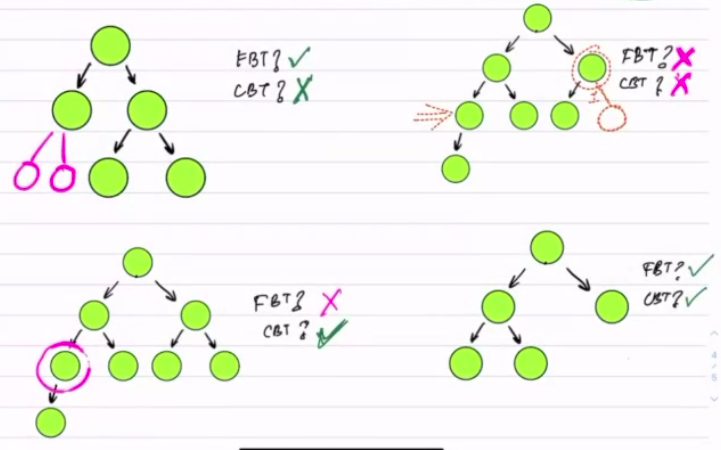 FBT? ✓
CBT? X
FBT? X
CBT? X
FBT? X
CBT? ✓
FBT? ✓
CBT? ✓
4
/
5